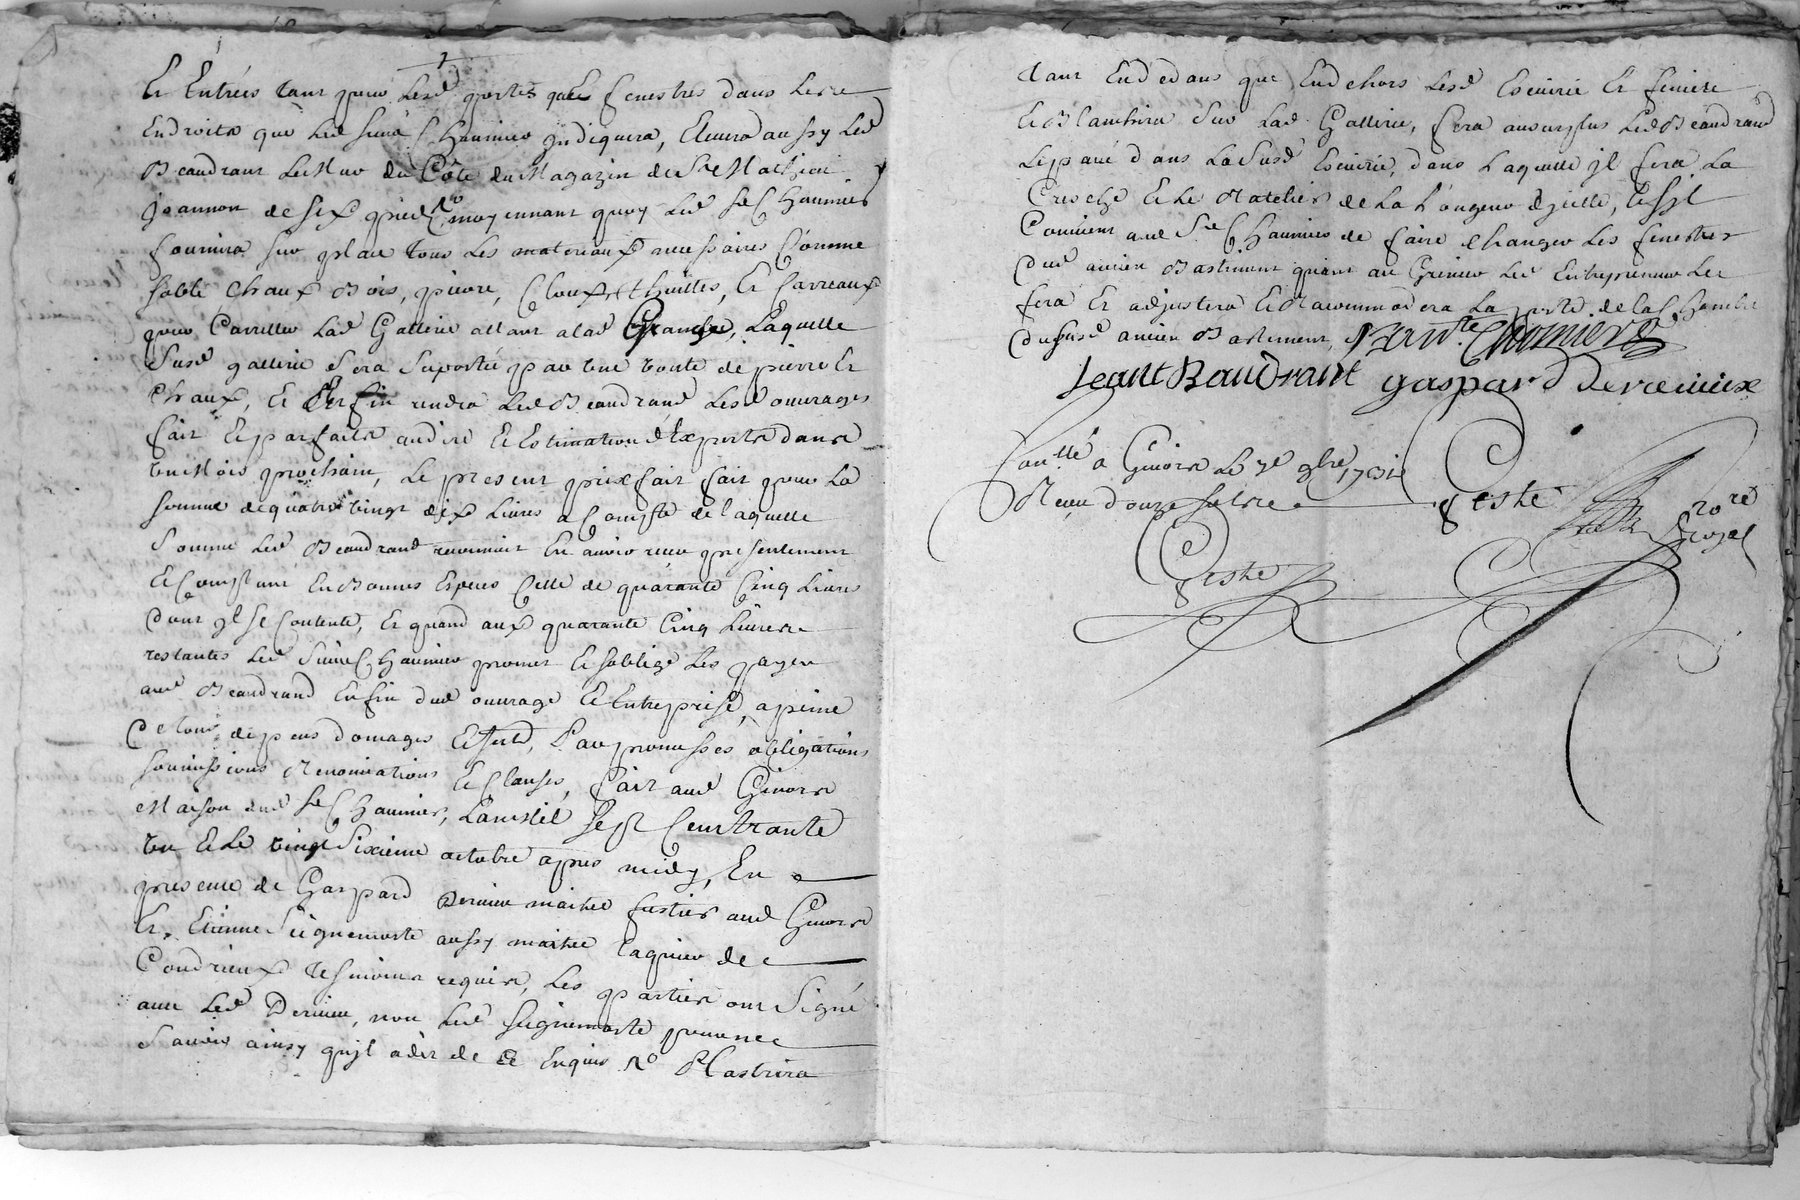 Et Entrées tant pour lesd portes que fenestres dans les
Endroits que led sieur Chaumier Indiquera, Elevera aussy led
Beaudrant le Mur du Côté du Magazin de Sr Mathieu
Jeannon de six pieds, moyennant quoy led Sr Chaumier
fournira sur place tous les materiaux necessaires Comme
sable chaux Bois, pierre, Cloux, thuilles, Et Carreaux
pour Carreller lad Gallerie allant a lad Grange, Laquelle
Susd gallerie Sera Suportée par une voute de pierre Et
Chaux, Et Enfin rendra led Beaudrand lesd ouvrages
fait Et parfaits au dire Et Estimation d'Experts dans
un Mois prochain, Le present prixfait fait pour La
somme de quatre vingt dix Livres a Compte de laquelle
Somme led Beaudrand reconnoit En avoir receu presentement
Et Comptant En Bonnes Especes Celle de quarante Cinq Livres
dont Il se Contente, Et quand aux quarante Cinq Livres
restantes led Sieur Chaumier promet Et soblige les payer
aud Beaudrand En fin dud ouvrage Et Entreprise, a peine
de tous depens domages Et Intd, Par promesses obligations
soumissions Renonciations Et Clauses, fait aud Givors
Maison dud Sr Chaumier, Lan Mil Sept Cent trante
un Et Le vingt Sixieme octobre apres midy, En
presence de Gaspard Dervieu maitre fustier aud Givors
Et, Etienne Seignemorte aussy maitre de
Condrieux tesmoins requis, Les parties ont Signé
avec led Dervieu, non led Seignemorte pour ne
Savoir ainsy qu'jl a dit de ce Enquis Ro Plastrira
tant En dedans que En dehors lesd Escuirie Et feniere
Et Blanchira Sur lad Gallerie, fera au surplus led Beaudrand
Le pavé dans la Susd Escuirie, dans Laquelle jl fera La
Creche Et le Ratelier de La Longeur d'jcelle, Et Sil
Convient aud Sr Chaumier de faire changer Les fenestres
dud ancien Bastiment quant au Grenier led Entrepreneur les
fera Et adjustera Et Racommodera La porte de la Chambre
du susd ancien Bastiment, Chomiere
Jeant Baudrant gaspard dervieuix
Conllé a Givors le 7e 9bre 1731
Receu douze sols Geste
Geste
Nore
Royal